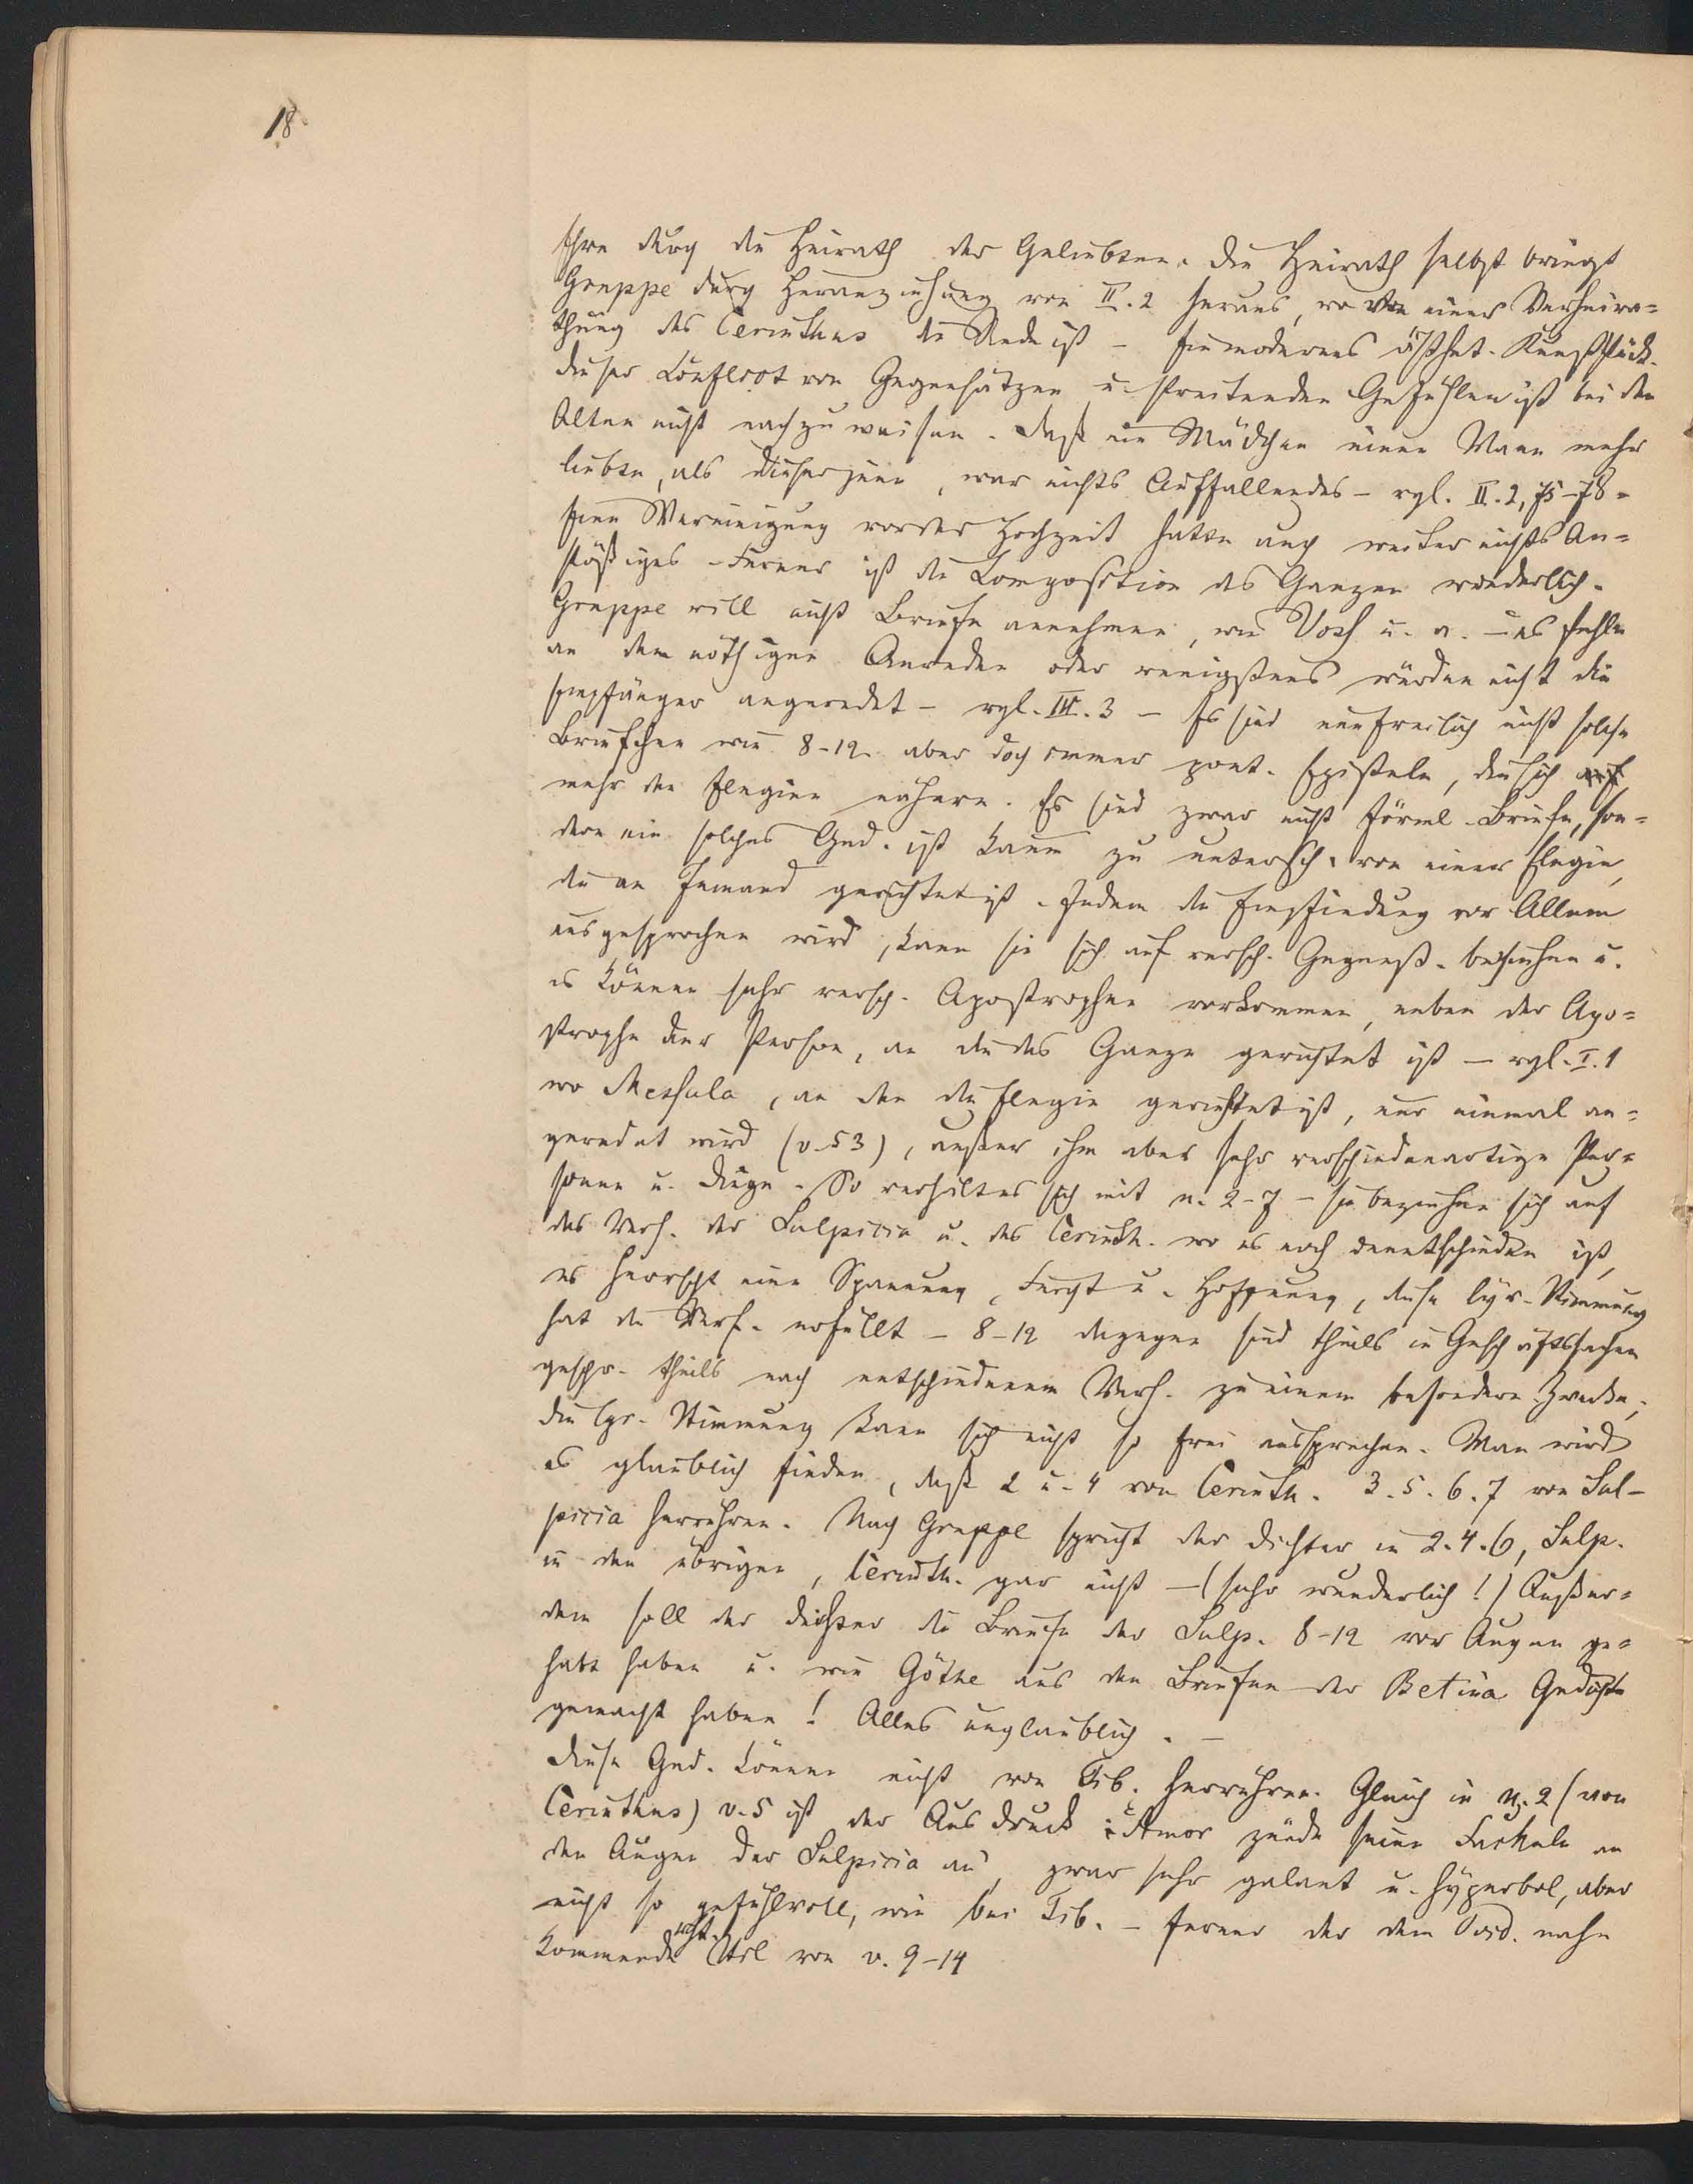 18.
Ehre durch die Heirath der Geliebten. Die Heirath selbst bringt
Gruppe durch Heranziehung von II. 2 heraus, wo von einer Verheira=
thung des Cerinthus die Rede ist – Ein modernes ästhet. Kunststück.
Dieser Conflict von Gegensätzen u. streitenden Gefühlen ist bei den
Alten nicht nachzuweisen. Daß ein Mädchen einen Mann mehr
liebte, als dieser jene, war nichts Auffallendes – vgl. II. 2, 75–78 –
Eine Vereinigung vor der Hochzeit hatte auch weiter nichts An=
stößiges – Ferner ist die Composition des Ganzen wunderlich.
Gruppe will nicht Briefe annehmen, wie Voss u. a. – es fehle
an den nöthigen Anreden oder wenigstens würden nicht die
Empfänger angeredet – vgl. IV. 3 – Es sind nun freilich nicht solche
Briefchen wie 8–12. aber doch immer poet. Episteln, die sich
mehr den Elegien nähern. Es sind zwar nicht förml. Briefe, son=
dern ein solches Ged. ist kaum zu untersch. von einer Elegie,
die an Jemand gerichtet ist. Indem die Empfindung vor Allem
ausgesprochen wird, kann sie sich auf versch. Gegenst. beziehen u.
es können sehr versch. Apostrophen vorkommen, neben der Apo=
strophe der Person, an die das Ganze gerichtet ist – vgl. I. 1
wo Messala, an den die Elegie gerichtet ist, nur einmal an=
geredet wird (v. 53), außer ihm aber sehr verschiedenartige Per=
sonen u. Dinge. So verhält es sich mit n. 2–7 – sie beziehen sich auf
das Verh. der Sulpicia u. des Cerinth. wo es noch unentschieden ist,
es herrscht eine Spannung, Furcht u. Hoffnung, diese lyr. Stimmung
hat den Verf. erfüllt – 8–12 dagegen sind theils in Geschäftssachen
geschr. theils nach entschiedenem Verh. zu einem besondern Zwecke;
die lyr. Stimmung kann sich nicht so frei aussprechen. Man wird
es glaublich finden, daß 2 u. 4 von Cerinth. 3. 5. 6. 7 von Sul–
picia herrühren. Nach Gruppe spricht der Dichter in 2. 4. 6, Sulp.
in den übrigen, Cerinth. gar nicht – (sehr wunderlich!) Außer=
dem soll der Dichter die Briefe der Sulp. 8–12 vor Augen ge=
habt haben u. wie Göthe aus den Briefen der Betina Gedichte
gemacht haben! Alles unglaublich. –
Diese Ged. können nicht von Tib. herrühren. Gleich in n. 2 (von
Cerinthus) v. 5 ist der Ausdruck: Amor zünde seine Fackeln an
den Augen der Sulpicia an, zwar sehr galant u. hyperbol, aber
nicht so gefühlvoll, wie bei Tib. – ferner der dem Ovid. nahe
kommende Stil von v. 9–14